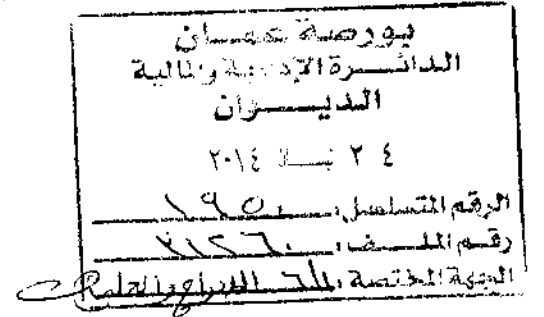 بورصة عمان
الدائرة الإدارية والمالية
الديوان
٢٤ نيسان ٢٠١٤
الرقم المتسلسل: ١٩٥٠
رقم الملف: ٣١٢٦٠
الجهة المختصة: